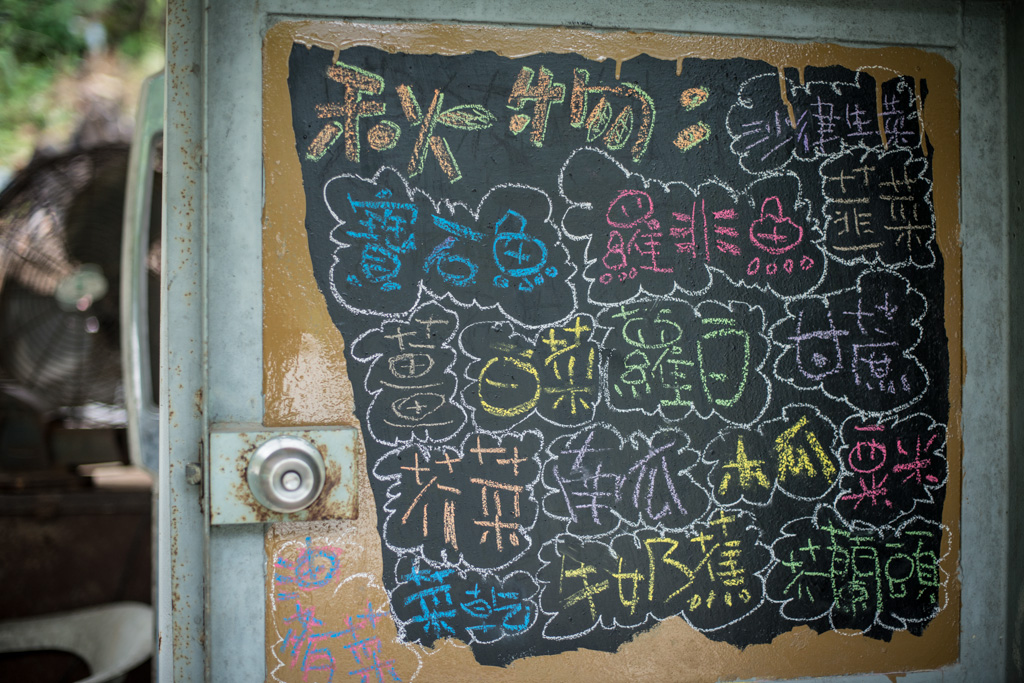 秋物：
沙律生菜
寶石魚
羅非魚
韮菜
薑
白菜
蘿蔔
甘蔗
芥菜
南瓜
木瓜
粟米
菜乾
牛奶蕉
茶蘭頭
油
菜